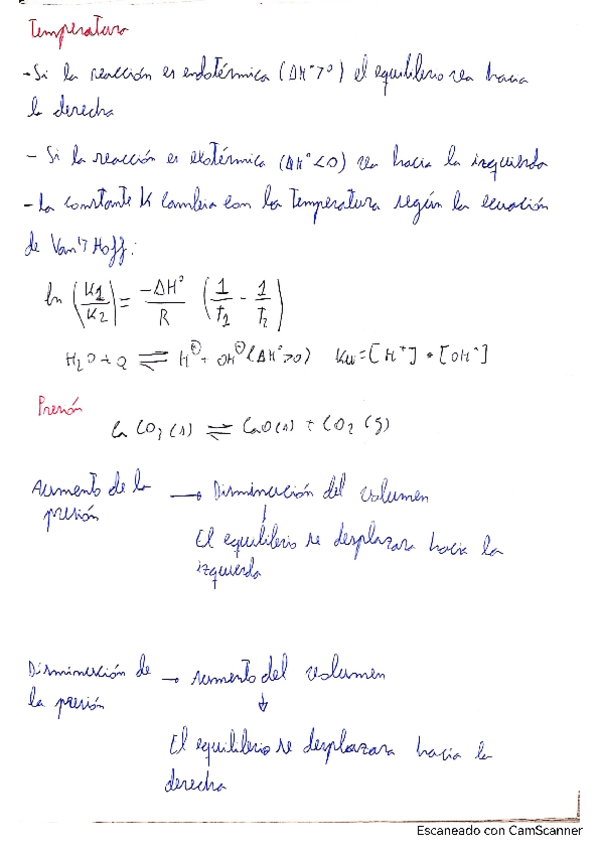 Temperatura
- Si la reacción es endotérmica (ΔH°>0) el equilibrio va hacia
la derecha
- Si la reacción es exotérmica (ΔH°<0) va hacia la izquierda
- La constante K cambia con la Temperatura según la ecuación
de Van't Hoff:
ln (K1/K2) = -ΔH°/R (1/t1 - 1/t2)
H2O + Q ⇌ H⊕ + OH⊖ (ΔH°>0) Kw = [H+] • [OH-]
Presión
CaCO3 (s) ⇌ CaO(s) + CO2 (g)
Aumento de la → Disminución del volumen
presión ↓
El equilibrio se desplazara hacia la
izquierda
Disminución de → aumento del volumen
la presión ↓
El equilibrio se desplazara hacia la
derecha
Escaneado con CamScanner